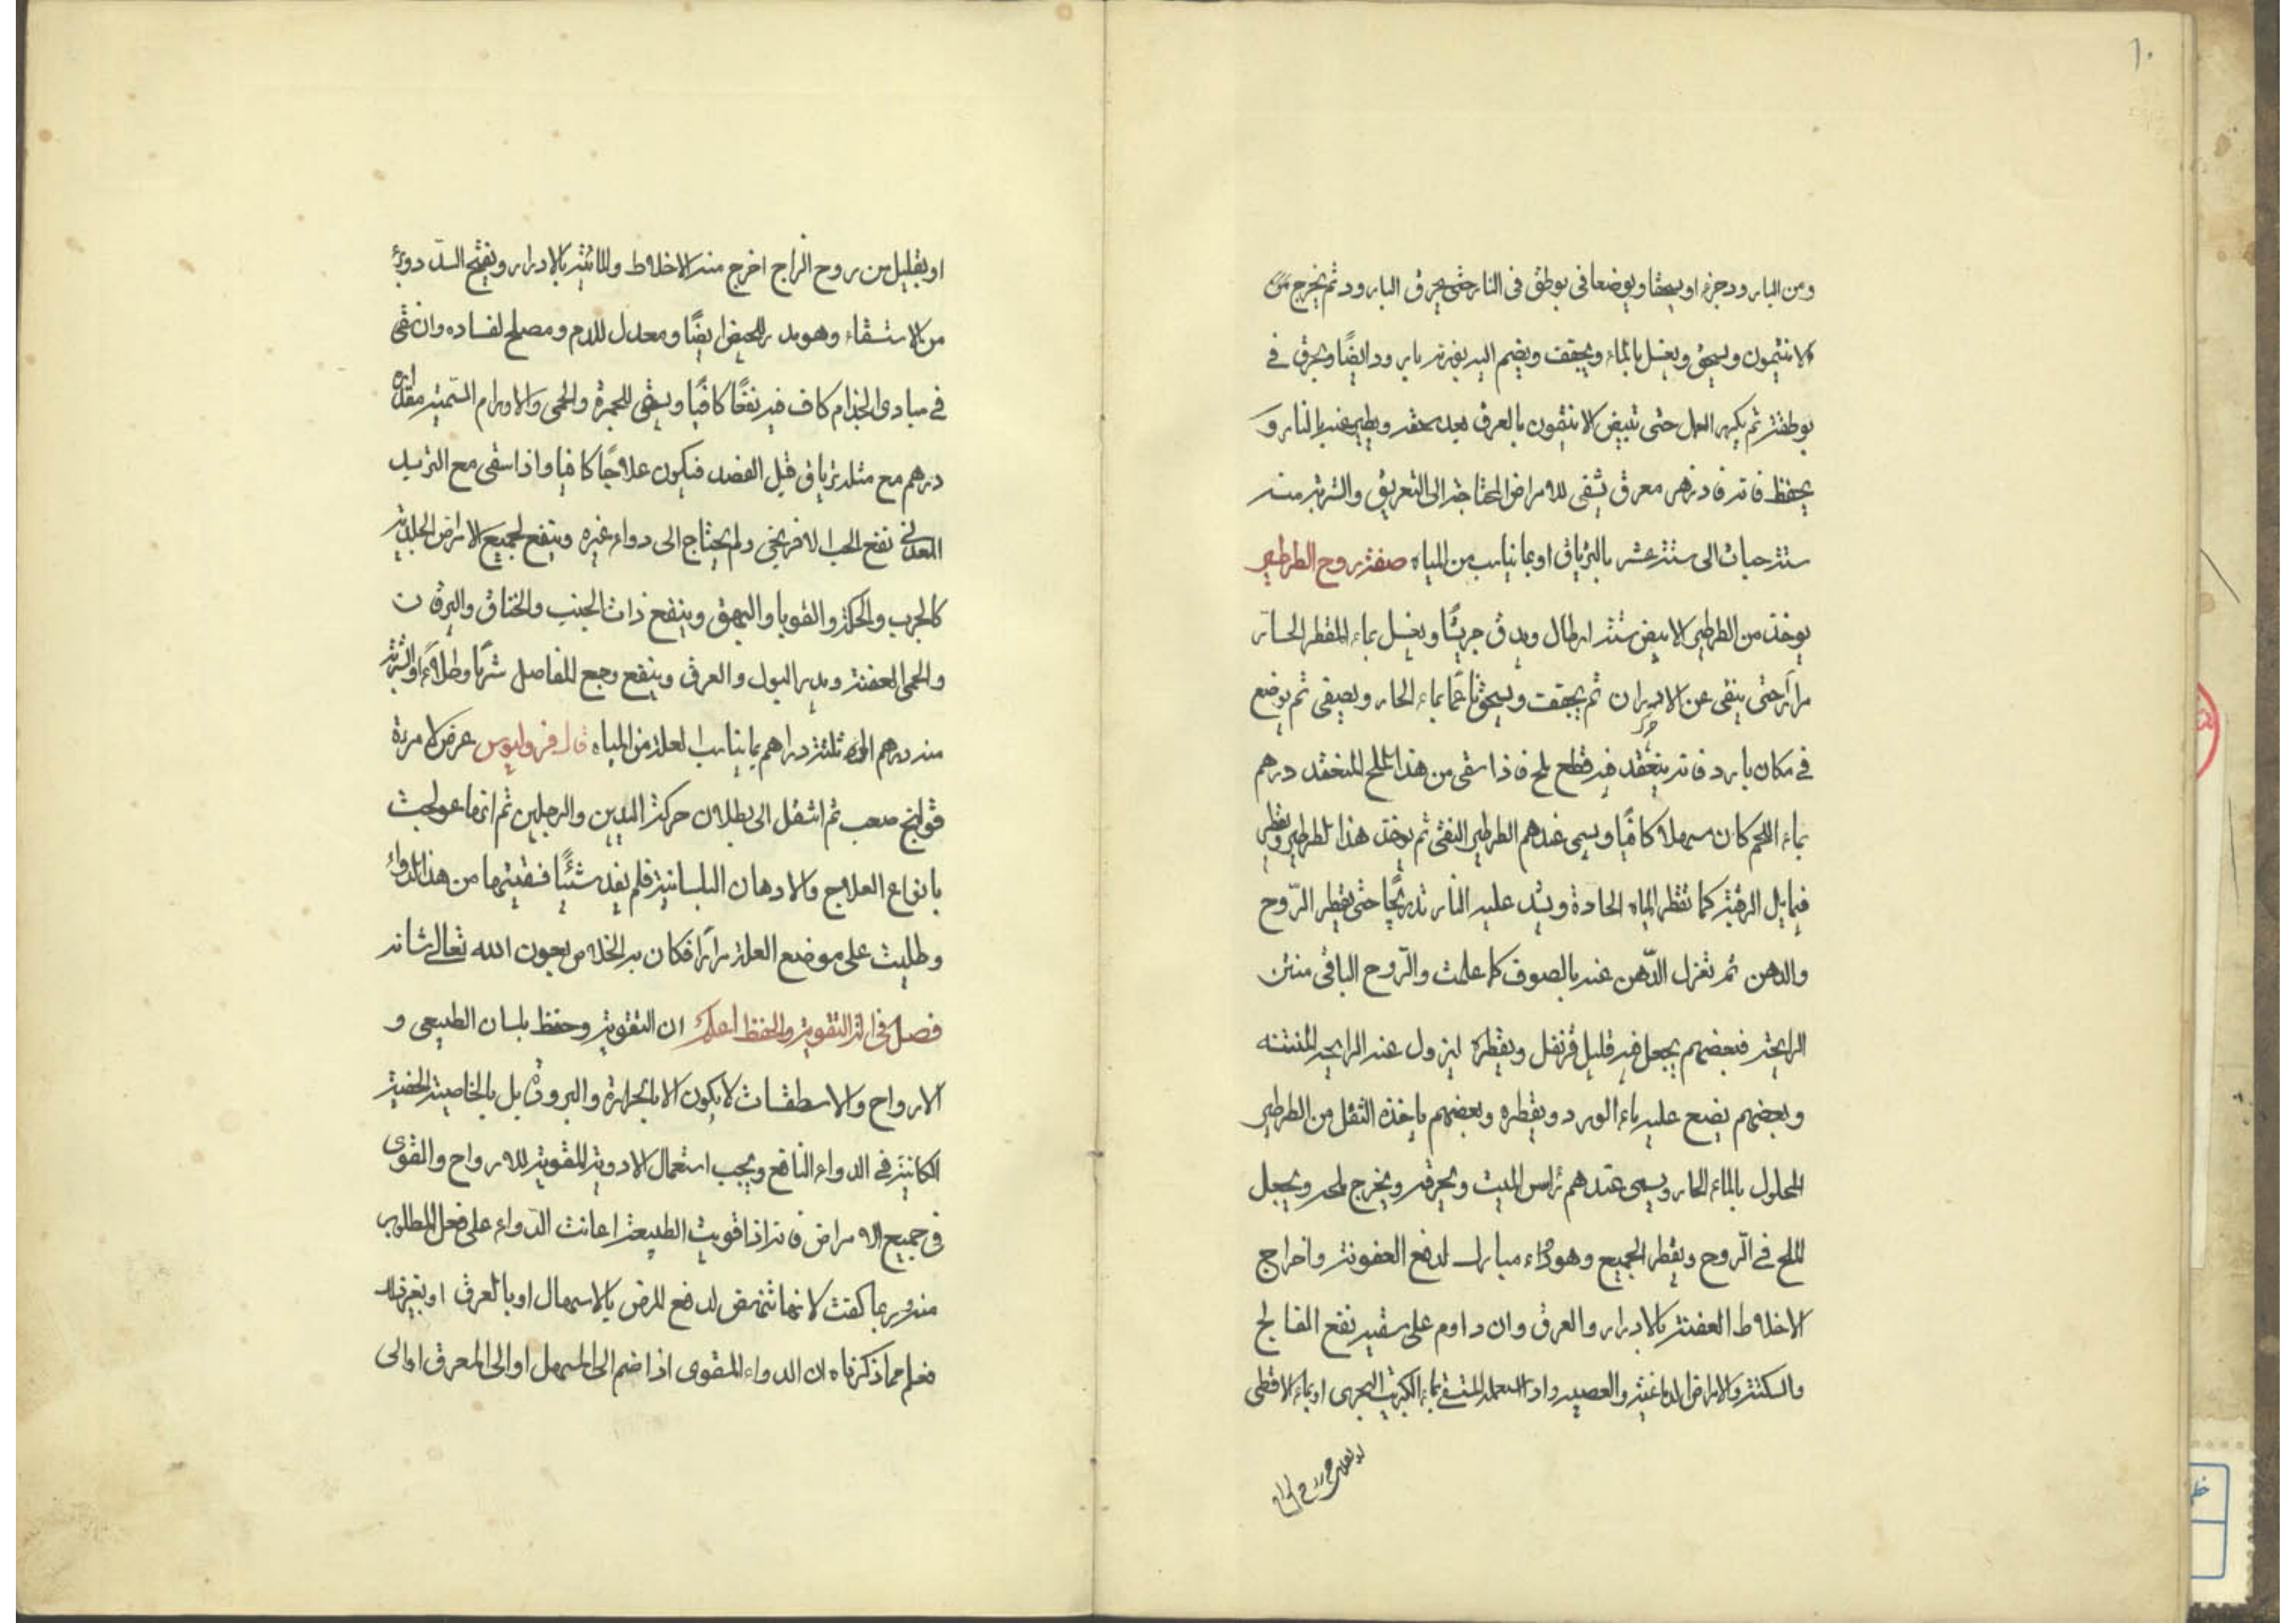 ١٠
ومن البارود جزء او يسحقا ويوضعا في بوطق في النار حتى يحرق البارود ثم يخرج
الانتيمون ويسحق ويغسل بالماء ويجفف ويضم اليه بوزنه بارود ايضًا ويحرق في
بوطقة ثم يكرر العمل حتى تبيض الانتيمون بالعرق بعد سحقه ويطير عنه بالنار و
يحفظ فانه فادزهر معرق يشفى للامراض المحتاجة الى التعريق والشربة منه
ستة حبات الى ستة عشر بالترياق او بما يناسب من المياه صفة روح الطرطير
يوخذ من الطرطير الابيض ستة ارطال ويدق جريشًا ويغسل بماء المقطر الحار
مرارًا حتى ينقى عن الادران ثم يجفف ويسحق ناعمًا بماء الحار ويصفى ثم يوضع
في مكان بارد فانه ينعقد فيه قطع ملح فاذا سقى من هذا الملح المنعقد درهم
بماء اللحم كان مسهلا كافيًا ويسمى عندهم الطرطير النقى ثم يوخذ هذا الطرطير ويقطر
قبايل الرهبة كما تقطر المياه الحادة ويشد عليه النار تدريجًا حتى يقطر الرّوح
والدهن ثم تعزل الدّهن عنه بالصوف كما علمت والرّوح الباقى منتن
الرايحة فبعضهم يجعل فيه قليل قرنفل ويقطره ليزول عنه الرايحة المنتنه
وبعضهم يضع عليه ماء الورد ويقطره وبعضهم ياخذه الثفل من الطرطير
المحلول بالماء الحار ويسمى عندهم رأس الميت ويحرقه ويخرج ملحه ويجعل
الملح في الرّوح ويقطر الجميع وهو دواء مبارك لدفع العفونة واخراج
الاخلاط العفنة بالادرار والعرق وان داوم على سقيه نفع الفالج
والسكتة والامراض الدماغية والعصبية واذا استعمله المستسقى بماء الكبريت البحرى او بماء الاقطى
او بقليل من روح الزاج
او بقليل من روح الزاج اخرج منه الاخلاط والمائية بالادرار ويفتح السدد
من الاستسقاء وهو مدر للحيض ايضًا ومعدل للدم ومصلح لفساده وان سقى
في مبادى الجذام كاف فيه نفعًا كافيًا ويسقى للجمرة والحمى والاورام السّمية مقدار
درهم مع مثله ترياق قبل الفصد فيكون علاجًا كافيا واذا سقى مع التربد
المعدنى نفع الحب الافرنجى ولم يحتاج الى دواء غيره وينفع لجميع الامراض الجلدية
كالجرب والحكة والقوبا والبهق وينفع ذات الجنب والخناق واليرقان
والحمى العفنة ويدر البول والعرق وينفع وجع المفاصل شربًا وطلاءً والشربة
منه درهم الى ثلثة دراهم بما يناسب العلة من المياه قال قروليوس عرض لامرءة
قولنج صعب ثم انتقل الى بطلان حركة اليدين والرجلين ثم انها عولجت
بانواع العلاج والادهان البلسانية فلم يفد شيئًا فسقيتها من هذا الدواء
وطليت على موضع العلة مرارًا فكان به الخلاص بعون الله تعالى شانه
فصل في ادلة التقوية والحفظ اعلم ان التقوية وحفظ بلسان الطبيعى و
الارواح والاسطقسات لا يكون الا بالحرارة والبرودة بل بالخاصية الخفية
الكاينة في الدواء النافع ويجب استعمال الادوية المقوية للارواح والقوى
في جميع الامراض فانه اذا قويت الطبيعة اعانت الدّواء على فعل المطلوب
منه وربما كفت لانها تنهض لدفع المرض بالاسهال او بالعرق او بغير ذلك
فعلم مما ذكرناه ان الدواء المقوى اذا ضم الى المسهل او الى المعرق او الى